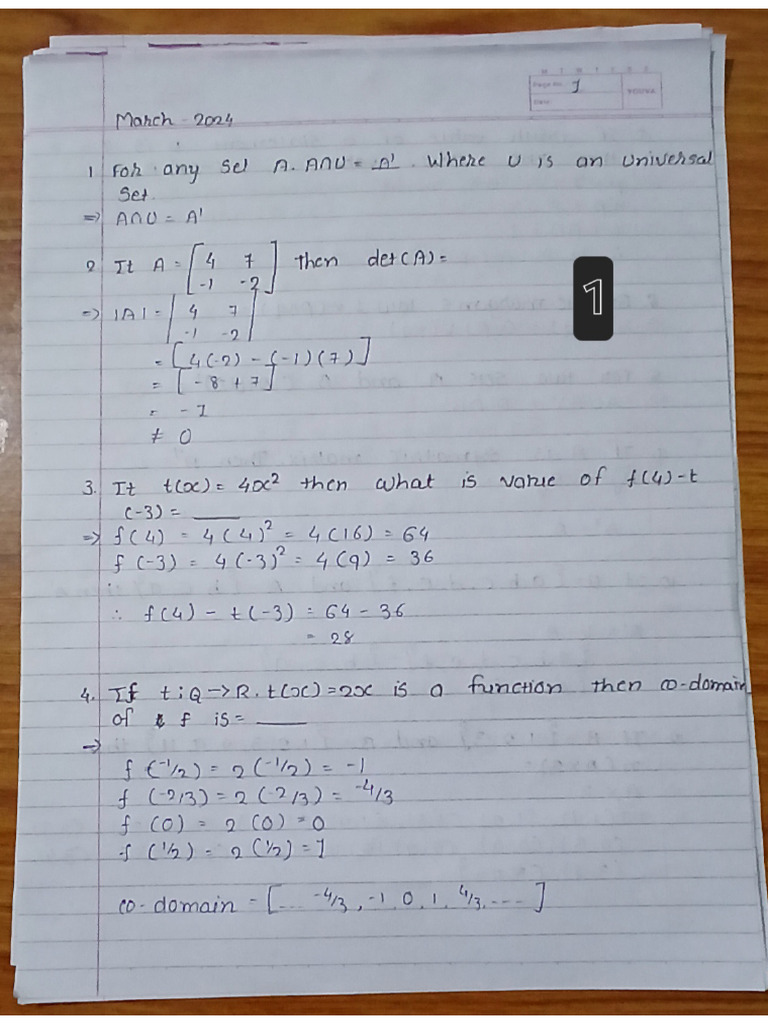 M T W T F S S
Page No. 1
Date:
YOUVA
March - 2024
1 For any Set A. A∩U = A'. Where U is an universal
Set.
=> A∩U = A'
2 If A = [4 7
-1 -2] then det(A) =
1
=> |A| = |4 7
-1 -2|
= [4(-2) - (-1)(7)]
= [-8 + 7]
= -1
≠ 0
3. If f(x) = 4x² then what is value of f(4)-f
(-3) = ___
=> f(4) = 4(4)² = 4(16) = 64
f(-3) = 4(-3)² = 4(9) = 36
∴ f(4) - f(-3) = 64 - 36
= 28
4. If f: Q -> R. f(x) = 2x is a function then co-domain
of f is = ___
=>
f(-1/2) = 2(-1/2) = -1
f(-2/3) = 2(-2/3) = -4/3
f(0) = 2(0) = 0
f(1/2) = 2(1/2) = 1
co-domain = [... -4/3, -1, 0, 1, 4/3, ---]